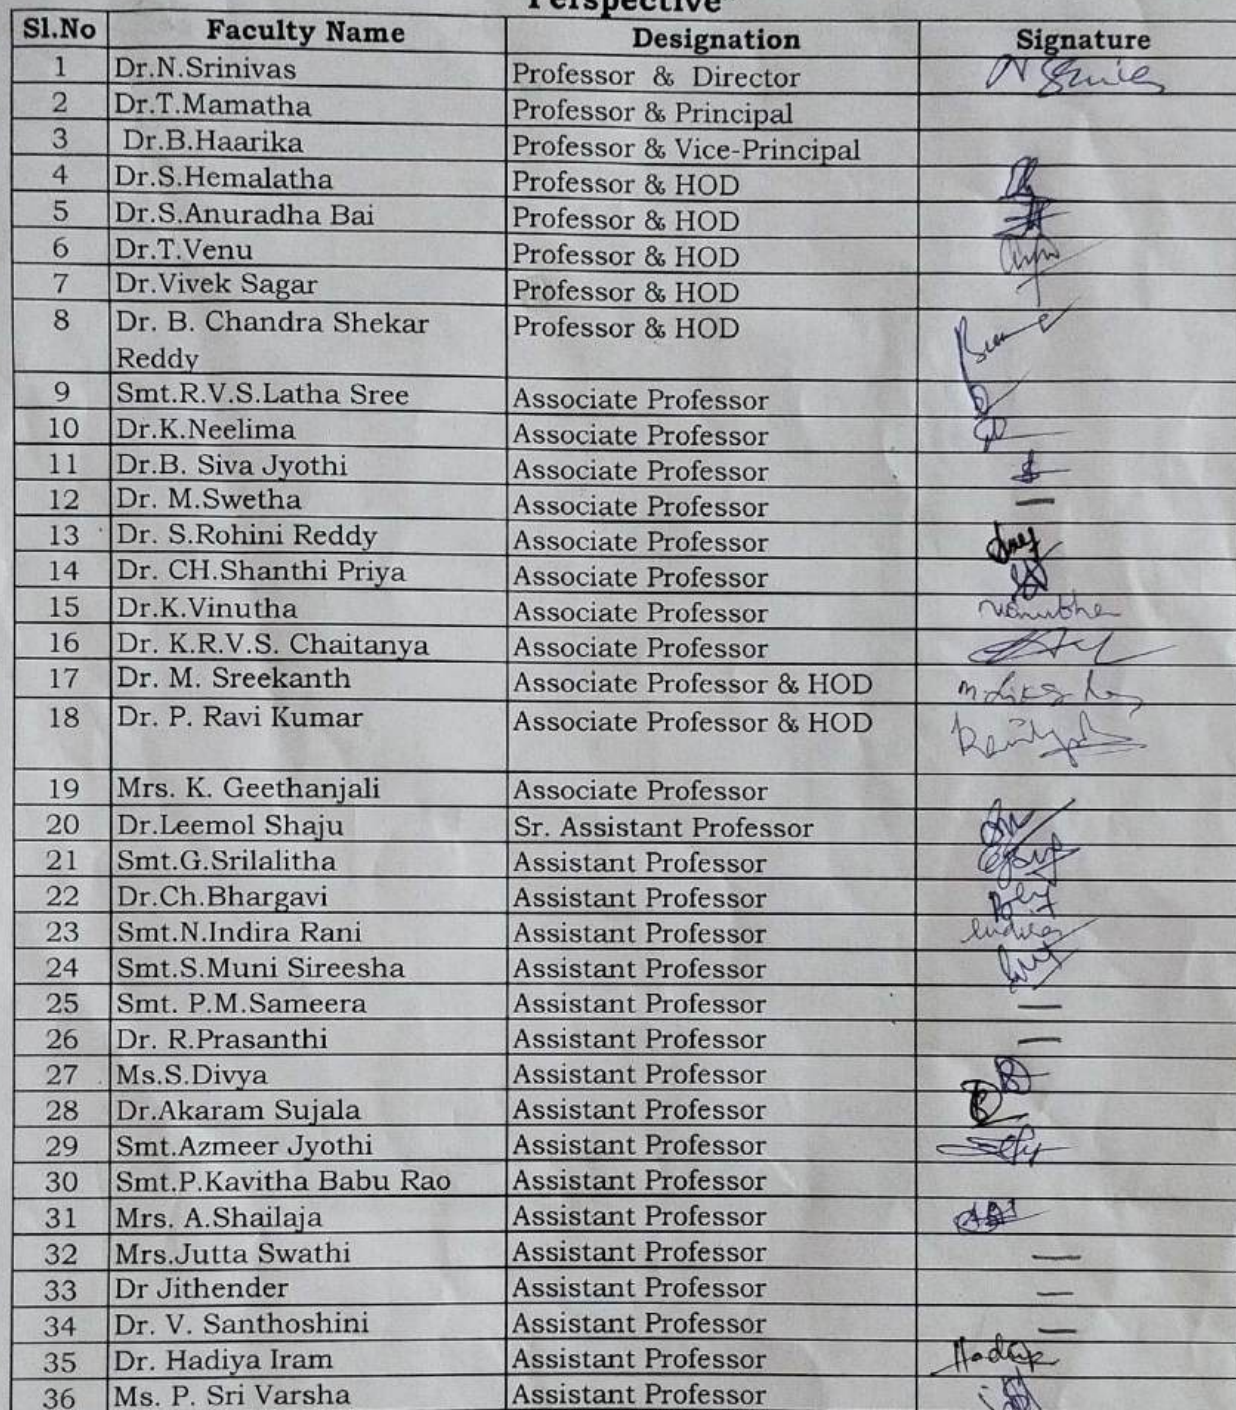 Perspective
Sl.No Faculty Name Designation Signature
1 Dr.N.Srinivas Professor & Director
2 Dr.T.Mamatha Professor & Principal
3 Dr.B.Haarika Professor & Vice-Principal
4 Dr.S.Hemalatha Professor & HOD
5 Dr.S.Anuradha Bai Professor & HOD
6 Dr.T.Venu Professor & HOD
7 Dr.Vivek Sagar Professor & HOD
8 Dr. B. Chandra Shekar Professor & HOD
Reddy
9 Smt.R.V.S.Latha Sree Associate Professor
10 Dr.K.Neelima Associate Professor
11 Dr.B. Siva Jyothi Associate Professor
12 Dr. M.Swetha Associate Professor —
13 Dr. S.Rohini Reddy Associate Professor
14 Dr. CH.Shanthi Priya Associate Professor
15 Dr.K.Vinutha Associate Professor
16 Dr. K.R.V.S. Chaitanya Associate Professor
17 Dr. M. Sreekanth Associate Professor & HOD
18 Dr. P. Ravi Kumar Associate Professor & HOD
19 Mrs. K. Geethanjali Associate Professor
20 Dr.Leemol Shaju Sr. Assistant Professor
21 Smt.G.Srilalitha Assistant Professor
22 Dr.Ch.Bhargavi Assistant Professor
23 Smt.N.Indira Rani Assistant Professor
24 Smt.S.Muni Sireesha Assistant Professor
25 Smt. P.M.Sameera Assistant Professor —
26 Dr. R.Prasanthi Assistant Professor —
27 Ms.S.Divya Assistant Professor
28 Dr.Akaram Sujala Assistant Professor
29 Smt.Azmeer Jyothi Assistant Professor
30 Smt.P.Kavitha Babu Rao Assistant Professor
31 Mrs. A.Shailaja Assistant Professor
32 Mrs.Jutta Swathi Assistant Professor —
33 Dr Jithender Assistant Professor —
34 Dr. V. Santhoshini Assistant Professor —
35 Dr. Hadiya Iram Assistant Professor
36 Ms. P. Sri Varsha Assistant Professor